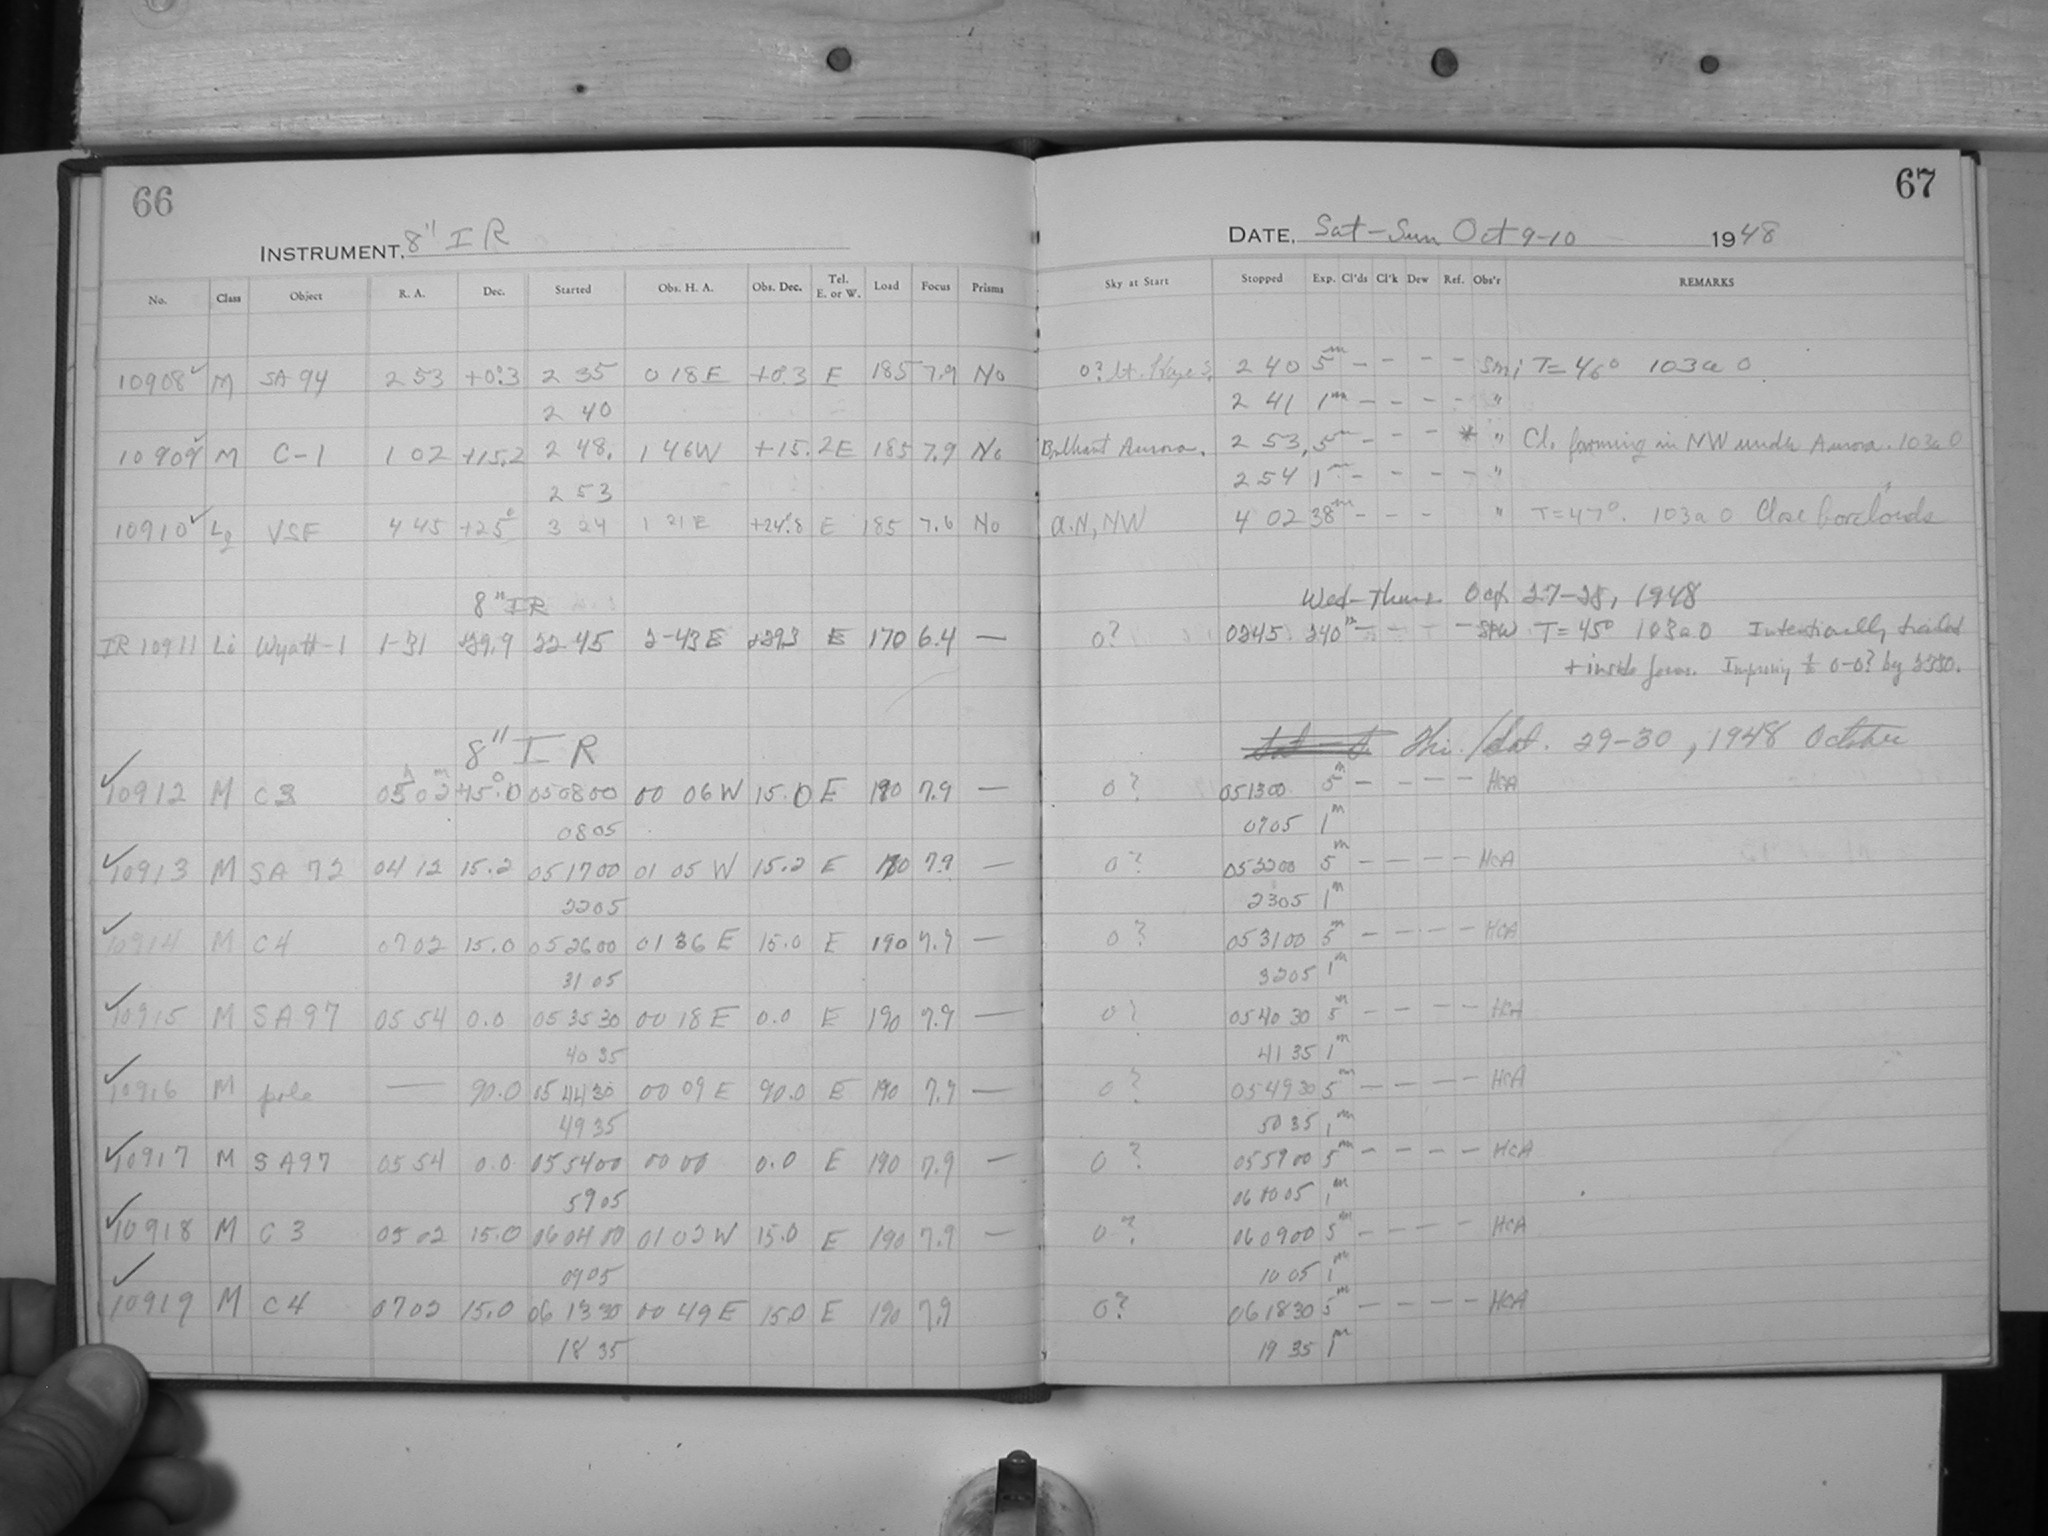 66
67
INSTRUMENT, 8" I R
DATE, Sat-Sun Oct 9-10 1948
No. Class Object R. A. Dec. Started Obs. H. A. Obs. Dec. Tel. E. or W. Load Focus Prisms Sky at Start Stopped Exp. Cl'ds Cl'k Dew Ref. Obs'r REMARKS
10908 ✓ M SA 94 2 53 +0°.3 2 35 0 18 E +0°.3 E 185 7.9 No 0? 2 40 5m - - - - Smi T = 46° 103a O
2 40 2 41 1m - - - - "
10909 ✓ M C-1 1 02 +15.2 2 48. 1 46 W +15.2 E 185 7.9 No Brilliant Aurora. 2 53, 5m - - - * " Cl. forming in NW under Aurora. 103a O
2 53 2 54 1m - - - - "
10910 ✓ L2 VSF 4 45 +25° 3 24 1 21 E +24°.8 E 185 7.6 No a. N, NW 4 02 38m - - - " T = 47°. 103a O Close for clouds
8" IR Wed-Thurs. Oct 27-28, 1948
IR 10911 Li Wyatt-1 1-31 +29.9 22 45 2-43 E +29.3 E 170 6.4 — 0? 0245 240m - - - - SPW T = 45° 103a O Intentionally trailed
+ inside focus. Improving to 0-0? by 2330.
8" I R 29-30, 1948 October
✓ 10912 M C3 05h 02m +15°.0 05 08 00 00 06 W 15.0 E 190 7.9 — 0? 05 13 00 5m - - - - HCA
08 05 09 05 1m
✓ 10913 M SA 72 04 12 15.2 05 17 00 01 05 W 15.2 E 190 7.9 — 0? 05 22 00 5m - - - - HCA
22 05 23 05 1m
✓ 10914 M C4 07 02 15.0 05 26 00 01 36 E 15.0 E 190 7.9 — 0? 05 31 00 5m - - - - HCA
31 05 32 05 1m
✓ 10915 M SA 97 05 54 0.0 05 35 30 00 18 E 0.0 E 190 7.9 — 0? 05 40 30 5m - - - - HCA
40 35 41 35 1m
✓ 10916 M pole — 90.0 05 44 30 00 09 E 90.0 E 190 7.9 — 0? 05 49 30 5m - - - - HCA
49 35 50 35 1m
✓ 10917 M SA97 05 54 0.0 05 54 00 00 00 0.0 E 190 7.9 — 0? 05 59 00 5m - - - - HCA
59 05 06 00 05 1m
✓ 10918 M C 3 05 02 15.0 06 04 00 01 02 W 15.0 E 190 7.9 — 0? 06 09 00 5m - - - - HCA
09 05 10 05 1m
✓ 10919 M C4 07 02 15.0 06 13 30 00 49 E 15.0 E 190 7.9 0? 06 18 30 5m - - - - HCA
18 35 19 35 1m